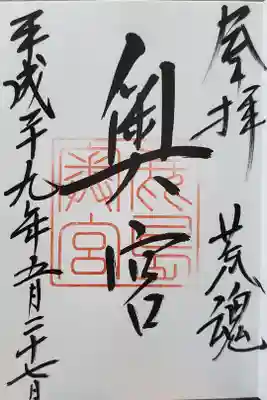 奉拝 荒魂
奥宮
鹿島
奥宮
平成二十九年五月二十七日